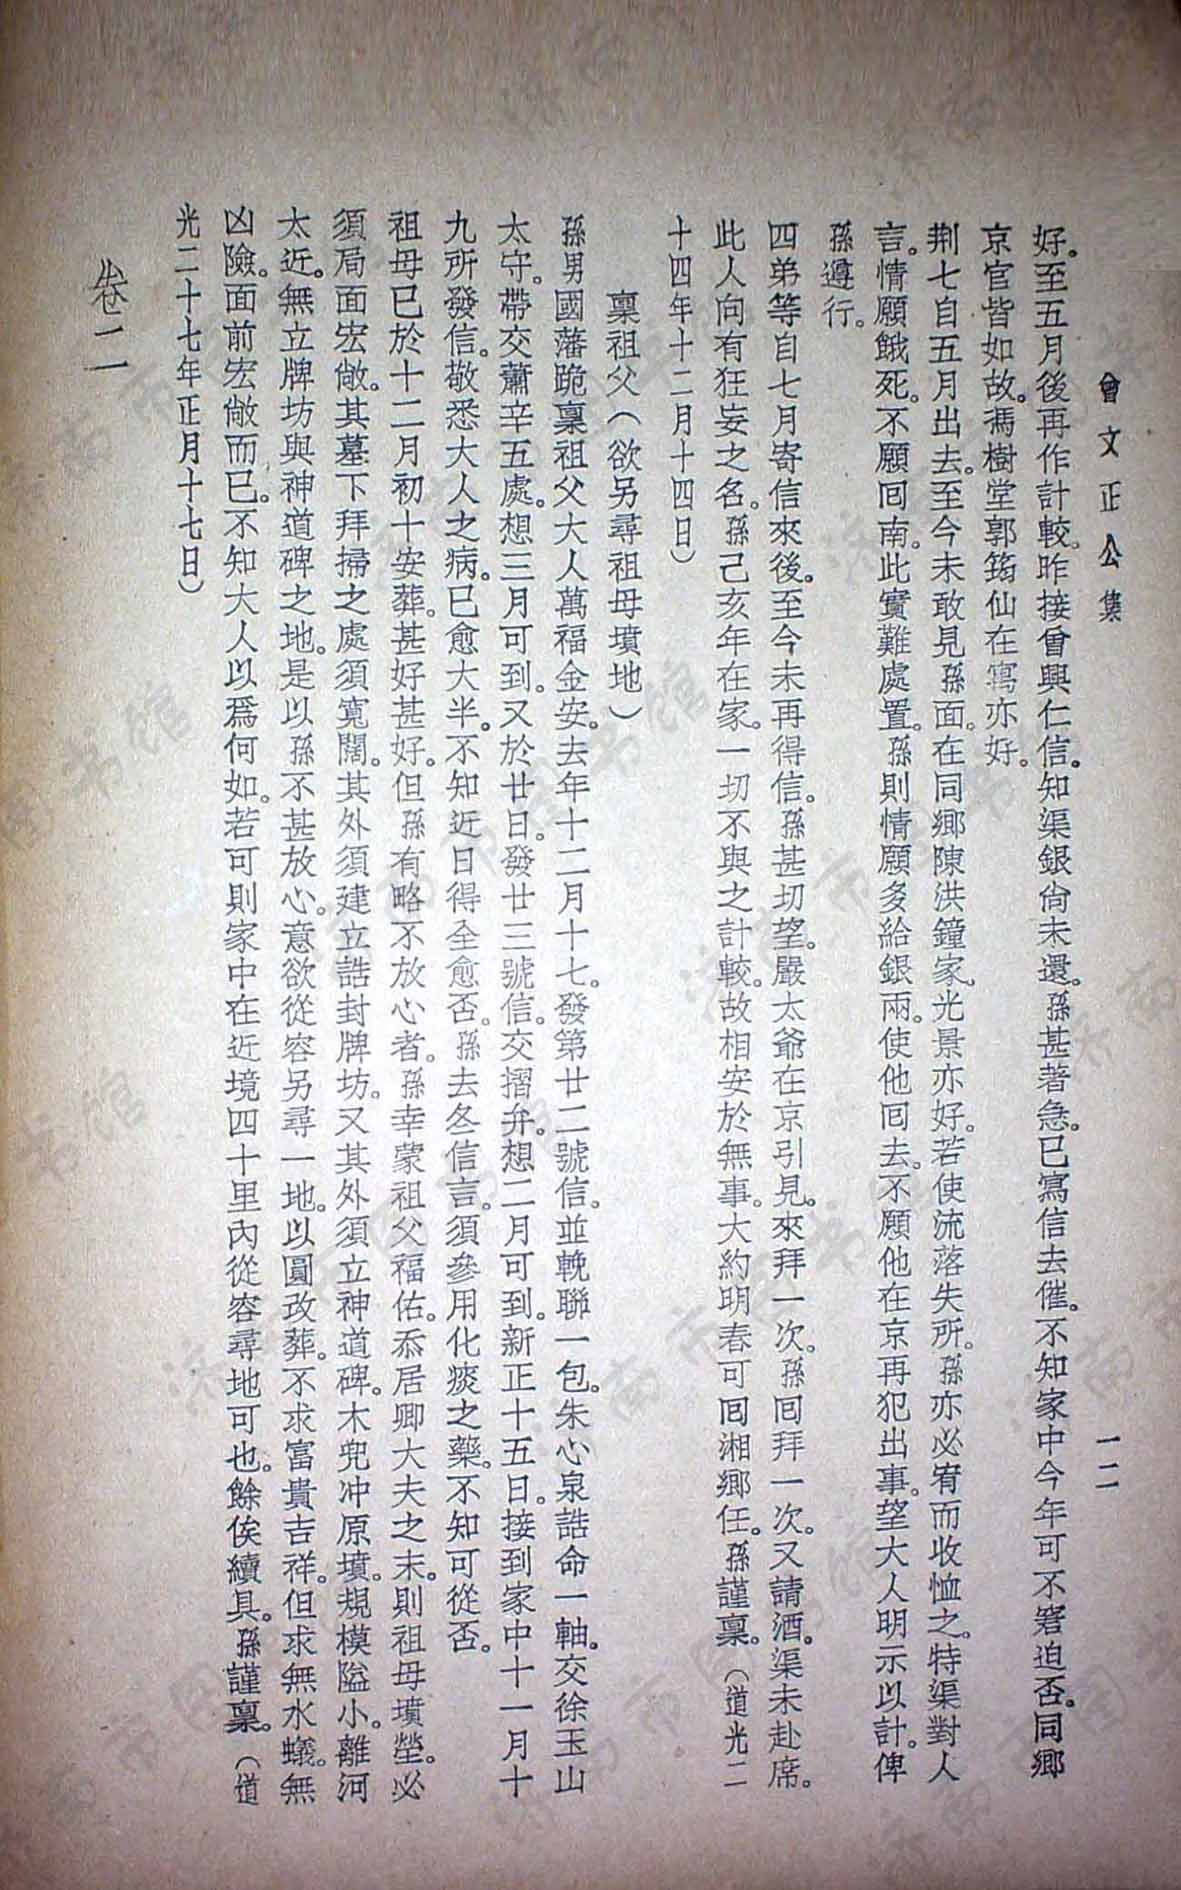 曾文正公集
一二
好。至五月後再作計較。昨接曾興仁信。知渠銀尙未還。孫甚著急。已寫信去催。不知家中今年可不窘迫否。同鄉
京官皆如故。馮樹堂郭筠仙在寓亦好。
荆七自五月出去。至今未敢見孫面。在同鄉陳洪鐘家。光景亦好。若使流落失所。孫亦必宥而收恤之。特渠對人
言。情願餓死。不願囘南。此實難處置。孫則情願多給銀兩。使他囘去。不願他在京再犯出事。望大人明示以計。俾
孫遵行。
四弟等自七月寄信來後。至今未再得信。孫甚切望。嚴太爺在京引見。來拜一次。孫囘拜一次。又請酒。渠未赴席。
此人向有狂妄之名。孫己亥年在家。一切不與之計較。故相安於無事。大約明春可囘湘鄉任。孫謹稟。（道光二
十四年十二月十四日）
稟祖父（欲另尋祖母墳地）
孫男國藩跪稟祖父大人萬福金安。去年十二月十七。發第廿二號信。並輓聯一包。朱心泉誥命一軸。交徐玉山
太守。帶交蕭辛五處。想三月可到。又於廿日。發廿三號信。交摺弁。想二月可到。新正十五日。接到家中十一月十
九所發信。敬悉大人之病。已愈大半。不知近日得全愈否。孫去冬信言。須參用化痰之藥。不知可從否。
祖母已於十二月初十安葬。甚好甚好。但孫有略不放心者。孫幸蒙祖父福佑。忝居卿大夫之末。則祖母墳塋。必
須局面宏敞。其墓下拜掃之處須寬闊。其外須建立誥封牌坊。又其外須立神道碑。木兜冲原墳。規模隘小。離河
太近。無立牌坊與神道碑之地。是以孫不甚放心。意欲從容另尋一地。以圓改葬。不求富貴吉祥。但求無水蟻。無
凶險。面前宏敞而已。不知大人以爲何如。若可則家中在近境四十里內從容尋地可也。餘俟續具。孫謹稟。（道
光二十七年正月十七日）
卷二